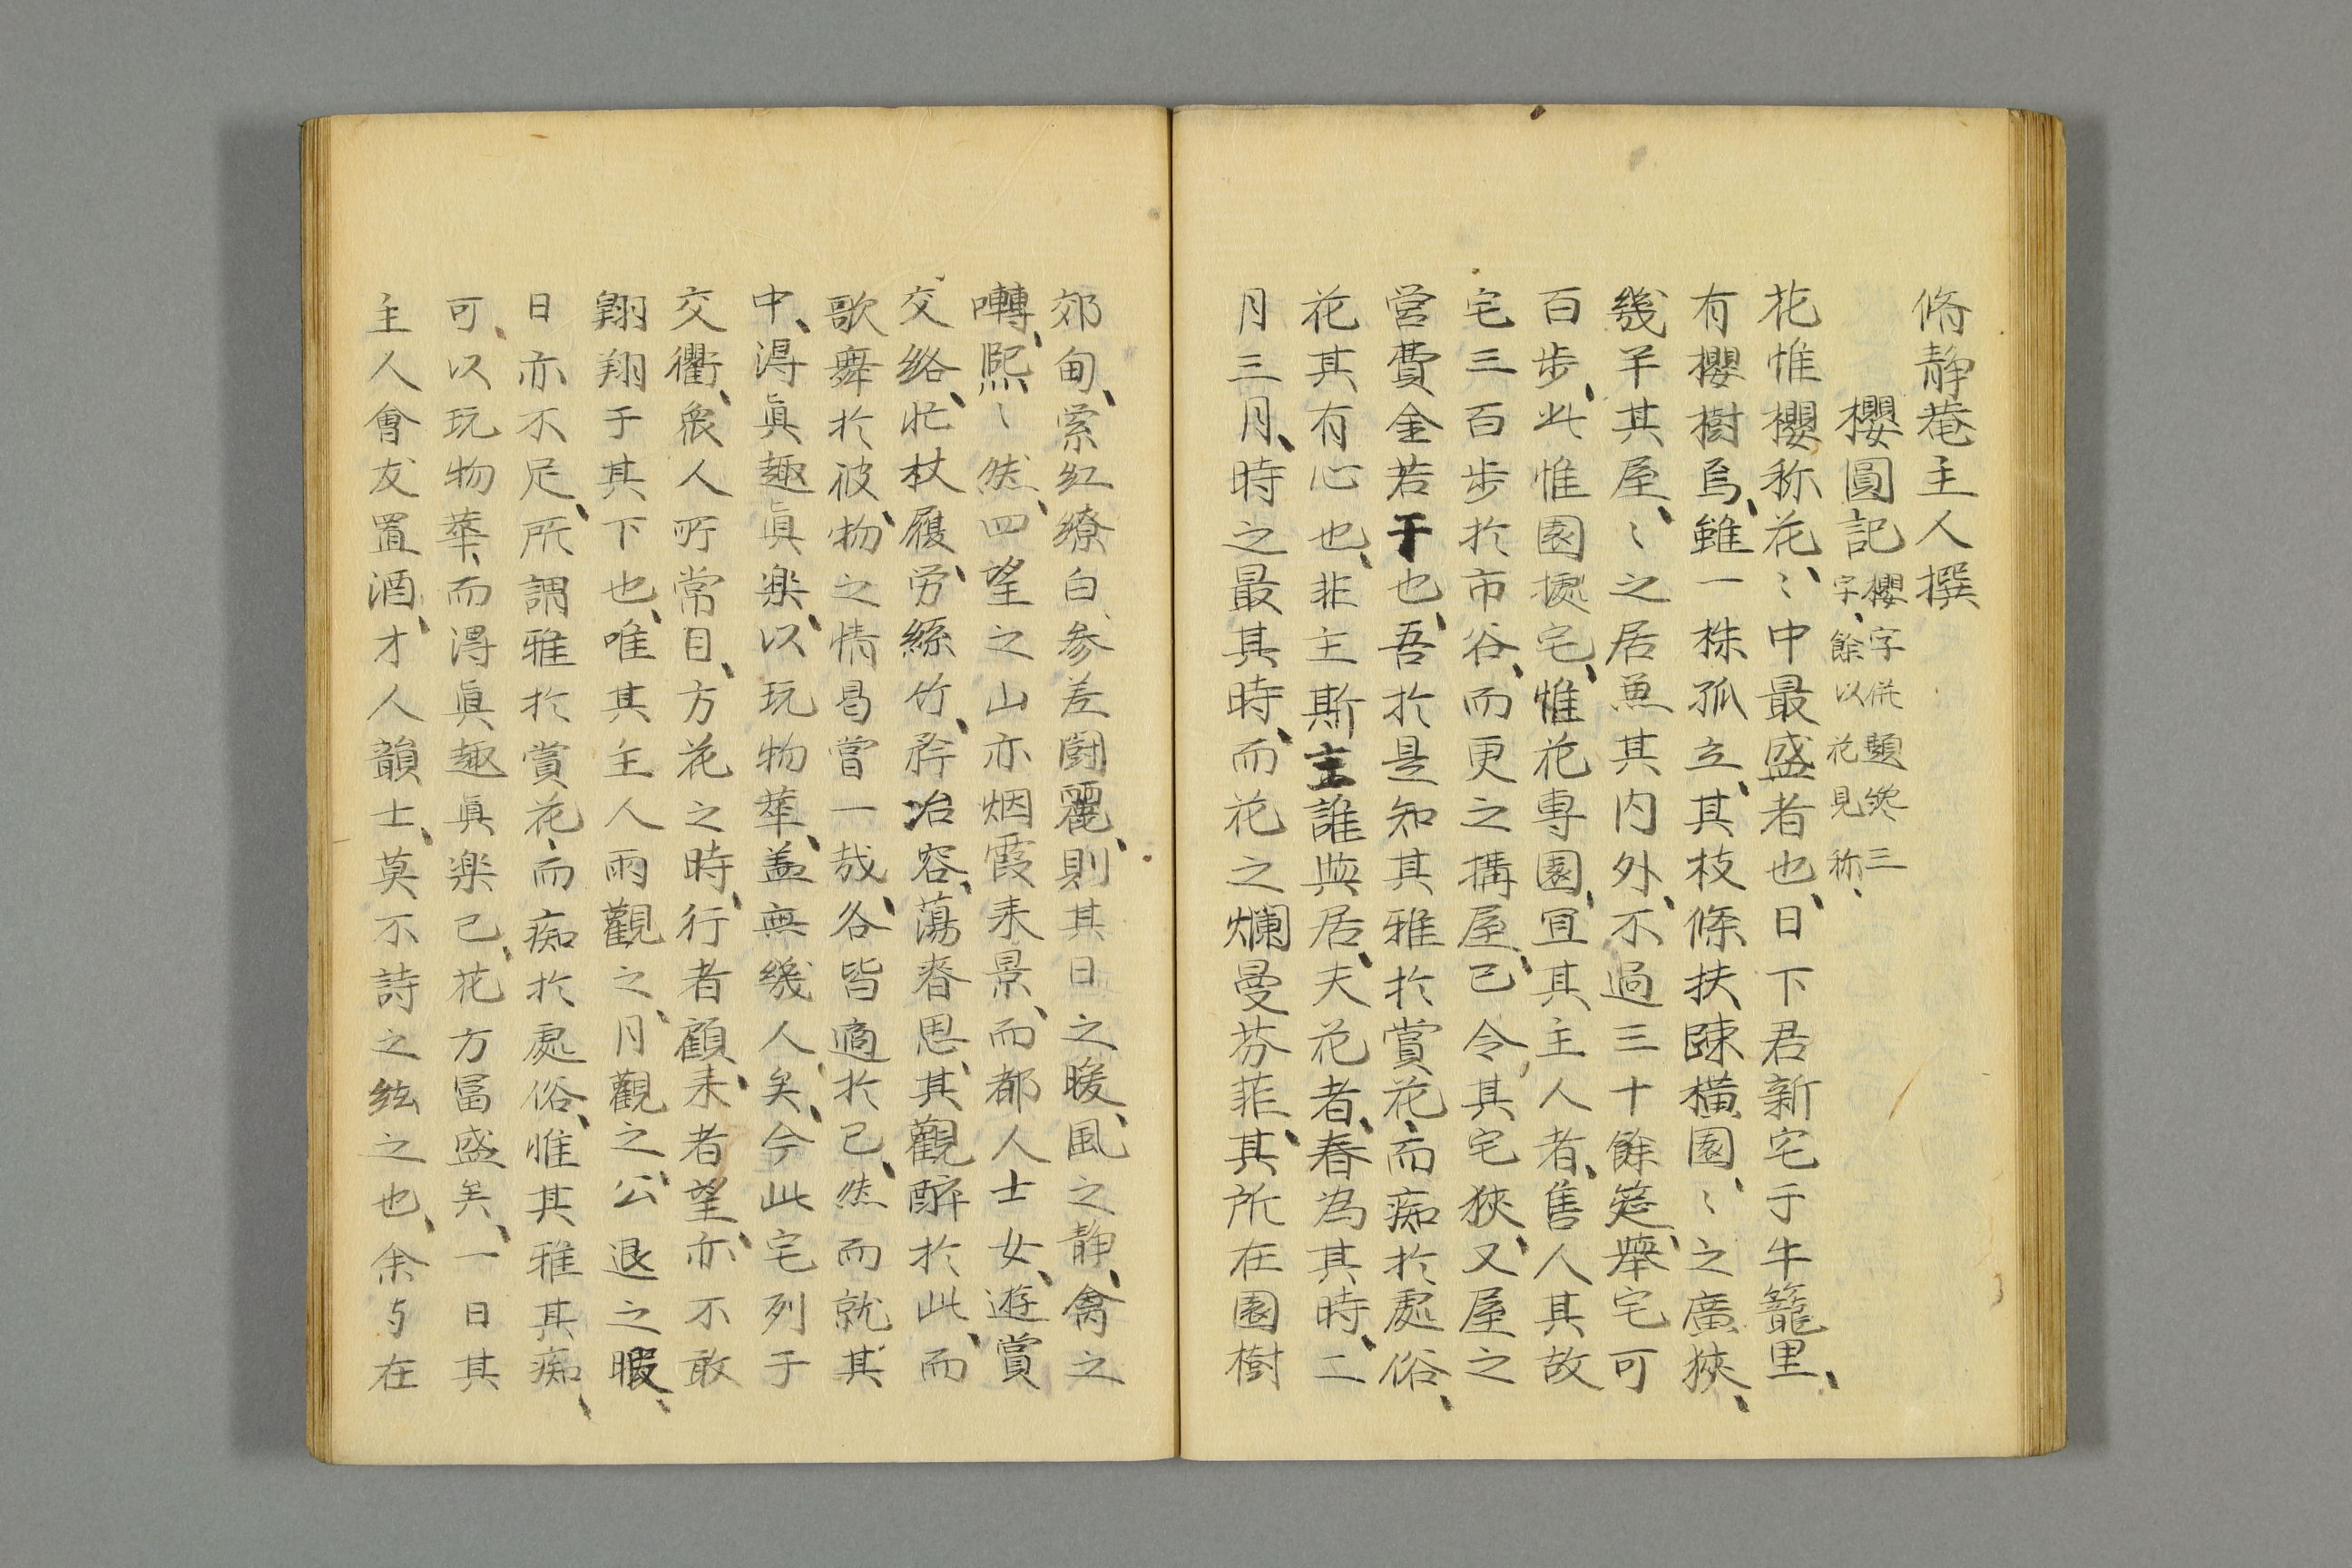 脩静菴主人撰
櫻圓記
櫻字併題総三
字、餘以花見称、
花惟櫻称花、〻中最盛者也、日下君新宅于牛籠里、
有櫻樹焉、雖一株孤立、其枝條扶踈横園、〻之廣狹、
幾半其屋、〻之居魚其内外、不過三十餘筵、舉宅可
百步、此惟園擾宅、惟花専園、宜其主人者、售人其故
宅三百步於市谷、而更之搆屋、已令其宅狹、又屋之
営費金若干也、吾於是知其雅於賞花、而痴於處俗、
花其有心也、非主斯主誰與居、夫花者、春為其時、二
月三月、時之最其時、而花之爛曼芬菲、其所在園樹
郊甸、索紅繚白、參差闘麗、則其日之暖、風之静、禽之
囀、熙〻然、四望之山亦烟霞耒景、而都人士女、遊賞
交絡、忙杖履、労絲竹、矜冶容、蕩春思、其觀醉於此、而
歌舞於彼、物之情曷嘗一哉、各皆適於已、然而就其
中、淂眞趣眞楽、以玩物華、盖無幾人矣、今此宅列于
交衢、衆人所常目、方花之時、行者顧、耒者望、亦不敢
翱翔于其下也、唯其主人雨觀之、月觀之、公退之暇、
日亦不足、所謂雅於賞花、而痴於處俗、惟其雅其痴、
可以玩物華、而淂眞趣眞楽已、花方冨盛矣、一日其
主人會友置酒、才人韻士、莫不詩之絃之也、余与在